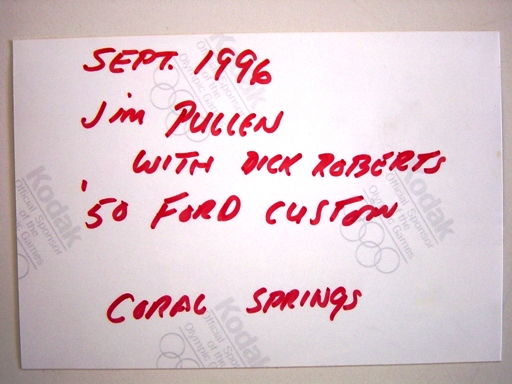 SEPT. 1996
Jim PULLEN
WITH DICK ROBERTS
'50 FORD CUSTOM
CORAL SPRINGS
Kodak
Official Sponsor
of the
Olympic Games
Kodak
Official Sponsor
of the
Olympic Games
Kodak
Official Sponsor
of the
Olympic Games
Kodak
Official Sponsor
of the
Olympic Games